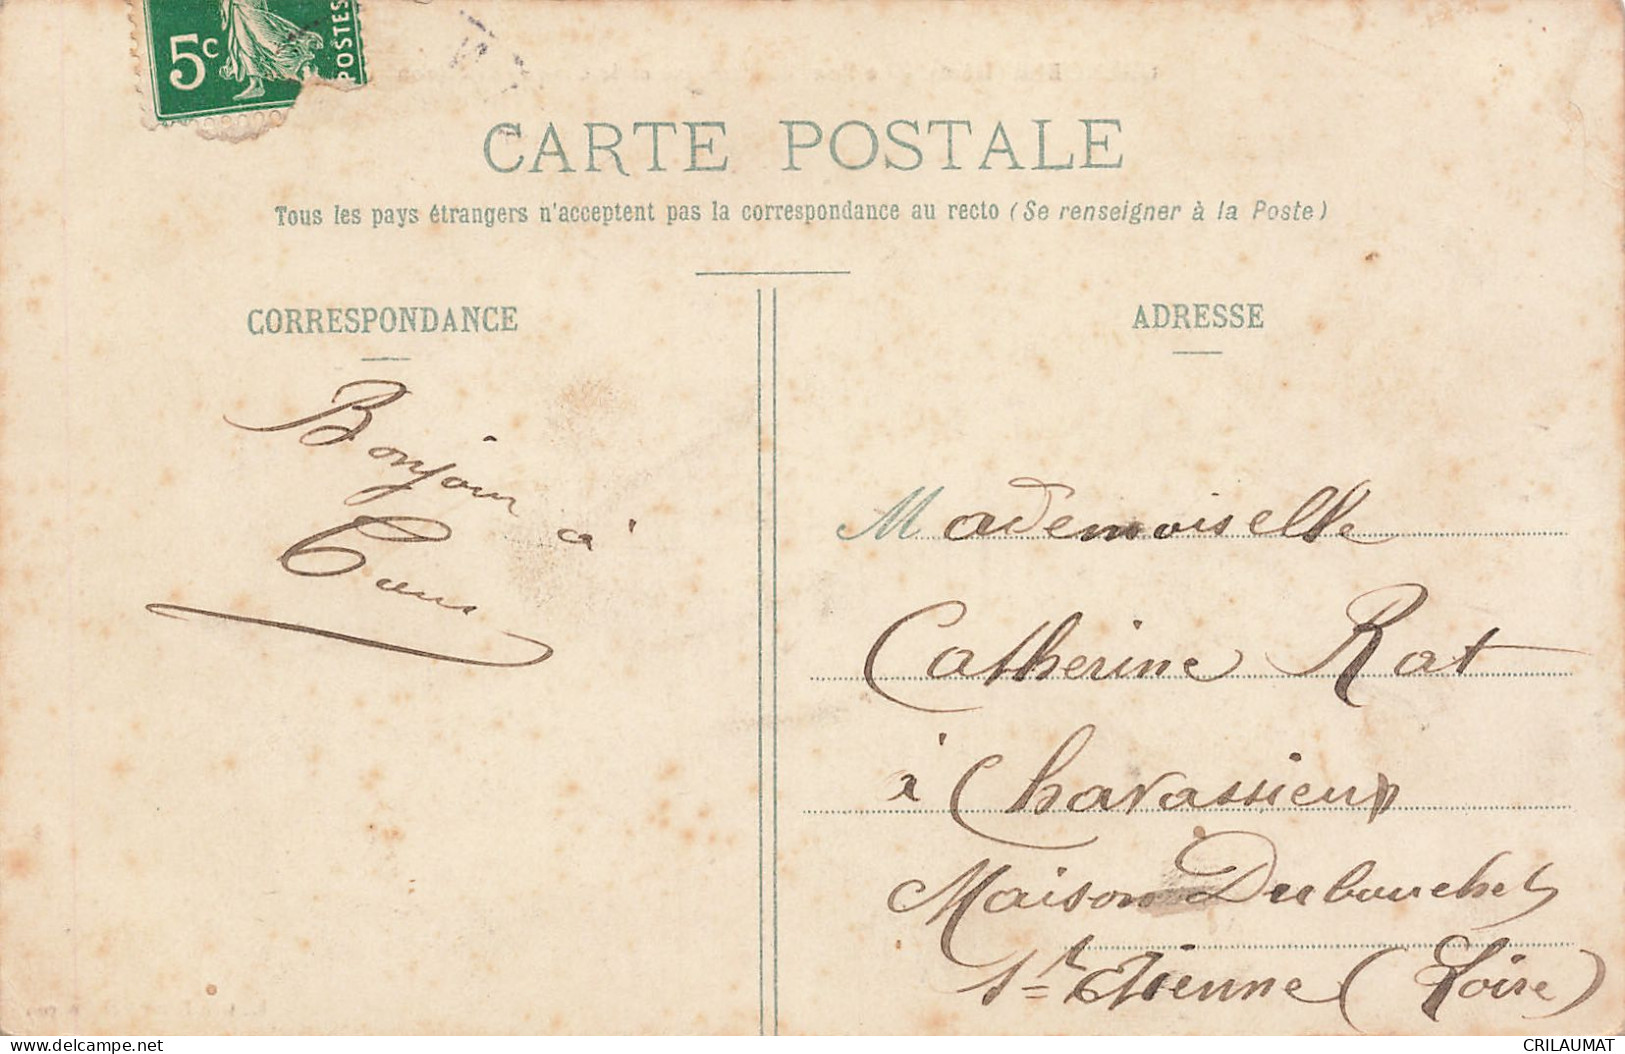 5c
POSTES
CARTE POSTALE
Tous les pays étrangers n'acceptent pas la correspondance au recto (Se renseigner à la Poste)
CORRESPONDANCE
Bonjour à
ADRESSE
Mademoiselle
Catherine Rat
à Chavassieux
Maison Dubouchet
St Etienne (Loire)
delcampe.net
CRILAUMAT